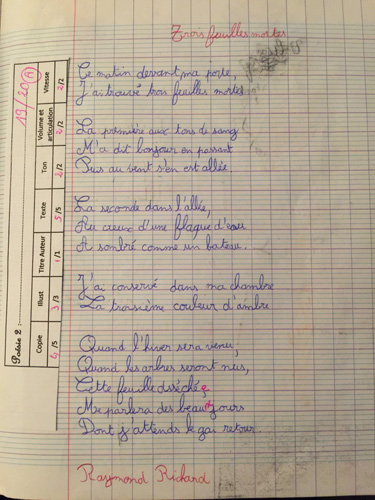 Trois feuilles mortes
Ce matin devant ma porte,
J'ai trouvé trois feuilles mortes
La première aux tons de sang
M'a dit bonjour en passant
Puis au vent s'en est allée.
La seconde dans l'allée,
Au creux d'une flaque d'eau
A sombré comme un bateau.
J'ai conservé dans ma chambre
La troisième couleur d'ambre
Quand l'hiver sera venu,
Quand les arbres seront nus,
Cette feuille désséchée
Me parlera des beaux jours
Dont j'attends le gai retour
Raymond Richard
Poésie 2 :
Copie 4/5
Illust 3/3
Titre Auteur 1/2
Texte 5/5
Ton 2/2
Volume et articulation 2/2
Vitesse 2/2
19/20 A